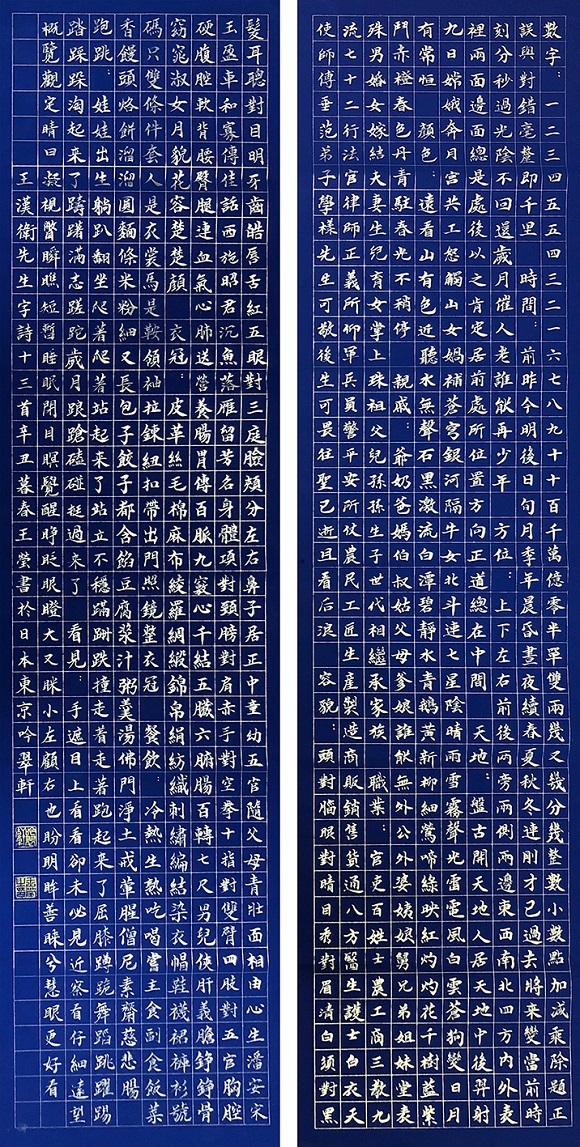 數字：一二三四五五四三二一六七八九十十百千萬億零半單雙兩幾又幾分幾整數小數點加減乘除題正
誤與對錯毫釐即千里　時間：前昨今明後日旬月季年晨昏晝夜續春夏秋冬連剛才己過去將來變當前時
刻分秒過光陰不回還歲月催人老誰能再少年　方位：上下左右前後兩旁兩側兩邊東西南北四方內外表
裡兩面邊面總是處後以之肯定居前處所位置方向正道總在中間　天地：盤古開天地人居天地中後羿射
九日嫦娥奔月宮共工怒觸山女媧補蒼穹銀河隔牛女北斗連七星陰晴雨雪霧聲光雷電風白雲蒼狗變日月
有常恒　顏色：遠看山有色近聽水無聲石黑激流白潭碧靜水青鵝黃新柳細鶯啼綠映紅灼灼花千樹藍紫
鬥赤橙春色丹青駐春光不稍停　親戚：爺奶爸媽伯叔姑父母爹娘誰能無外公外婆姨娘舅兄弟姐妹堂表
珠男婚女嫁結夫妻生兒育女掌上珠祖父兒孫孫生子世代相繼承家族　職業：官吏百姓士農工商士白三教九
流七十二行法官律師正義所仰軍兵員警平安所仗農民工匠生產製造商販銷售貨通八方醫生護士白衣天
使師傅垂范弟子學樣先生可敬後生可畏往聖已逝且看后浪　容貌：頭對腦眼對睛目秀對眉清白須對黑
髮耳聰對目明牙齒皓唇舌紅五眼對三庭臉頰分左右鼻子居正中童幼五官隨父母青壯面相由心生潘安宋
玉盈車和寡傳佳話西施昭君沉魚落雁留芳名身體項對頸膀對肩赤手對空拳十指對雙臂四肢對五官胸腔
硬腹腔軟背腰臀腿連血氣心肺送營養腸胃傳百脈九竅心千結五臟六腑腸百轉七尺男兒使肝義膽錚錚骨
窈窕淑女月貌花容楚楚顏　衣冠：皮革絲毛棉麻布綾羅綢緞錦帛絹紡纖刺繡編結染衣帽鞋襪裙褲衫號
碼只雙條件套人是衣裳馬是鞍領袖拉鍊紐扣帶出門照鏡整衣冠　餐飲：冷熱生熟吃喝嘗主食副食飯菜
香饅頭烙餅溜溜圓麵條米粉細又長包子餃子都含餡豆腐漿汁粥羹湯佛門淨土戒葷腥僧尼素齋慈悲腸
跑跳：娃娃出生躺趴翻坐爬著爬著站起來了站立不穩蹣跚跌撞走著走著跑起來了屈膝蹲跪舞蹈跳躍踢
踏踩跺淘起來了躊躇滿志蹉跎歲月踉蹌磕碰挺過來了　看見：手遮日上看看卻未必見近察看仔細遠望
概覽觀定睛曰凝視瞥瞬瞧短暫睡眠開目瞑覺醒睜眨眼瞪大又眯小左顧右也盼明眸善睞兮慧眼更好看
王漢衛先生字詩十三首辛丑暮春王瑩書於日本東京吟翠軒